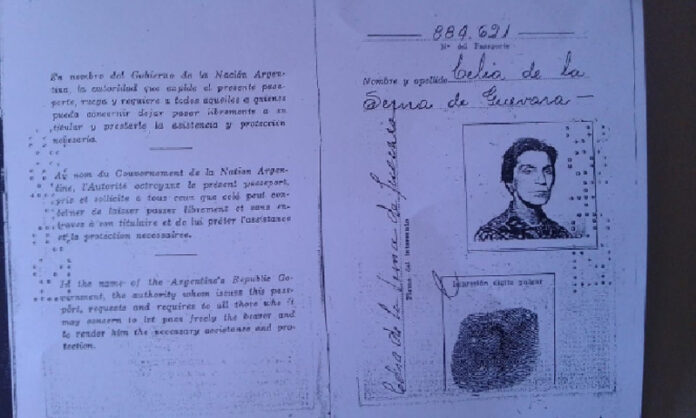 En nombre del Gobierno de la Nación Argen-
tina, la autoridad que expide el presente pasa-
porte, ruega y requiere a todos aquellos a quienes
pueda concernir dejar pasar libremente a su
titular y prestarle la asistencia y protección
necesaria.
Au nom du Gouvernement de la Nation Argen-
tine, l'Autorité octroyant le présent passeport,
prie et sollicite a tous ceux que celà peut con-
cerner de laisser passer librement et sans en-
traves à son titulaire et de lui prêter l'assistance
et la protection necessaires.
In the name of the Argentine's Republic Go-
vernment, the authority whom issues this pass-
port, requests and requires to all those who it
may concern to let pass freely the bearer and
to render him the necessary assistance and pro-
tection.
889.621
Nº del Pasaporte
Nombre y apellido Celia de la
Serna de Guevara
Celia de la Serna de Guevara
Firma del interesado
Impresión dígito pulgar